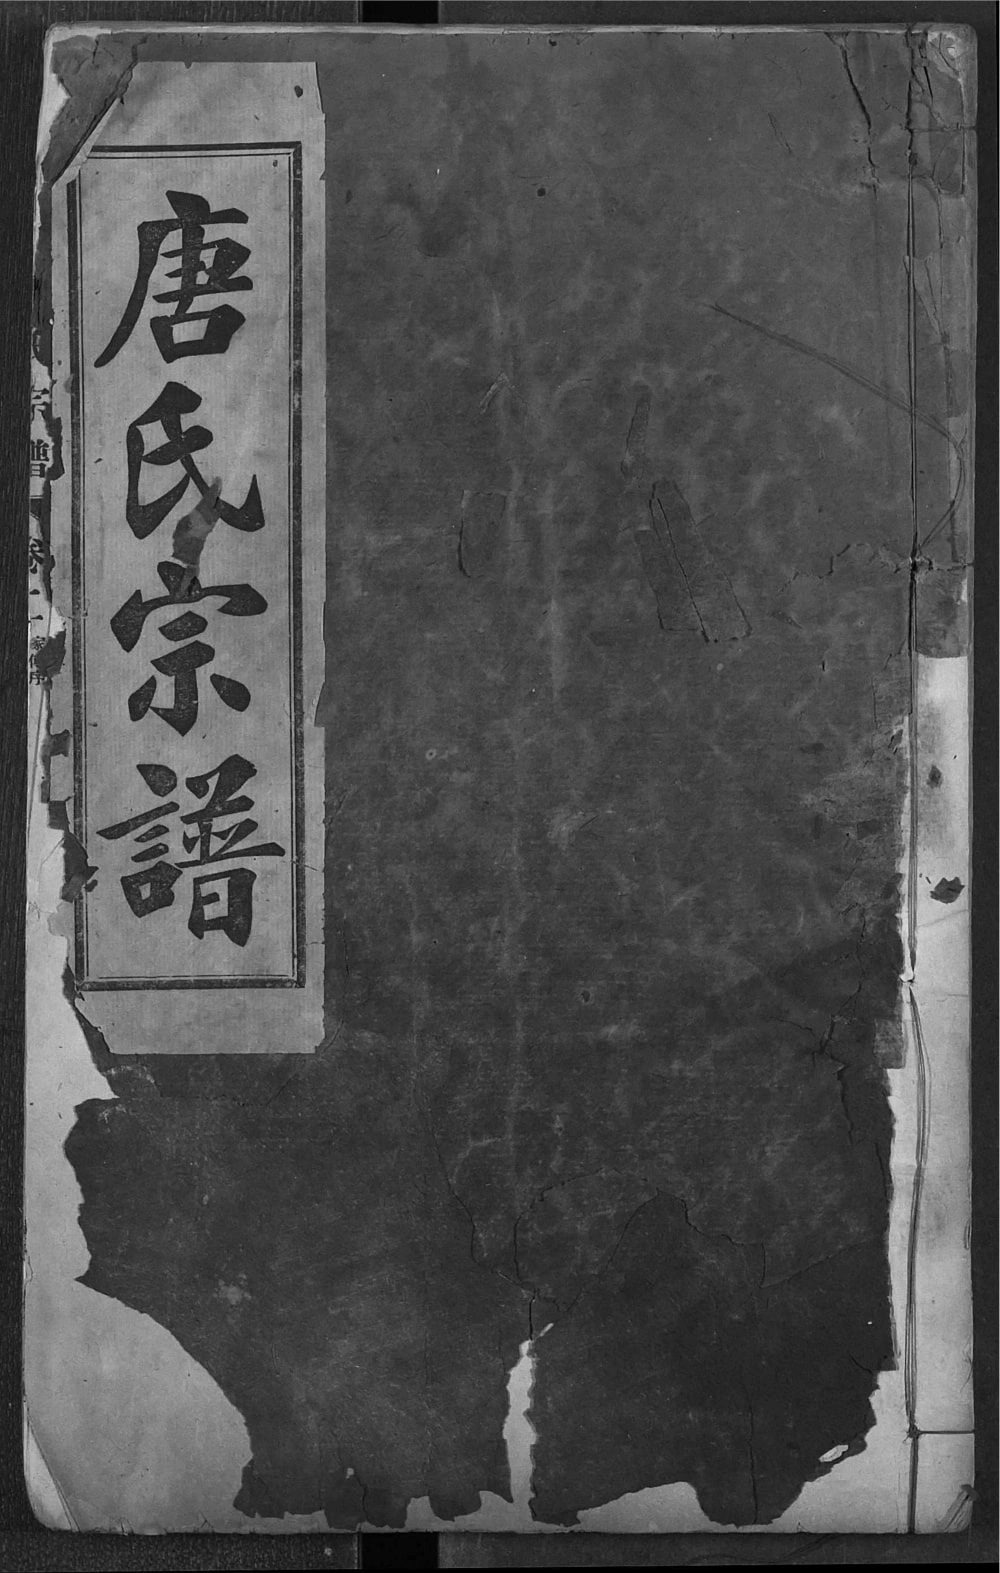 唐氏宗譜
宗譜 卷二 家傳序